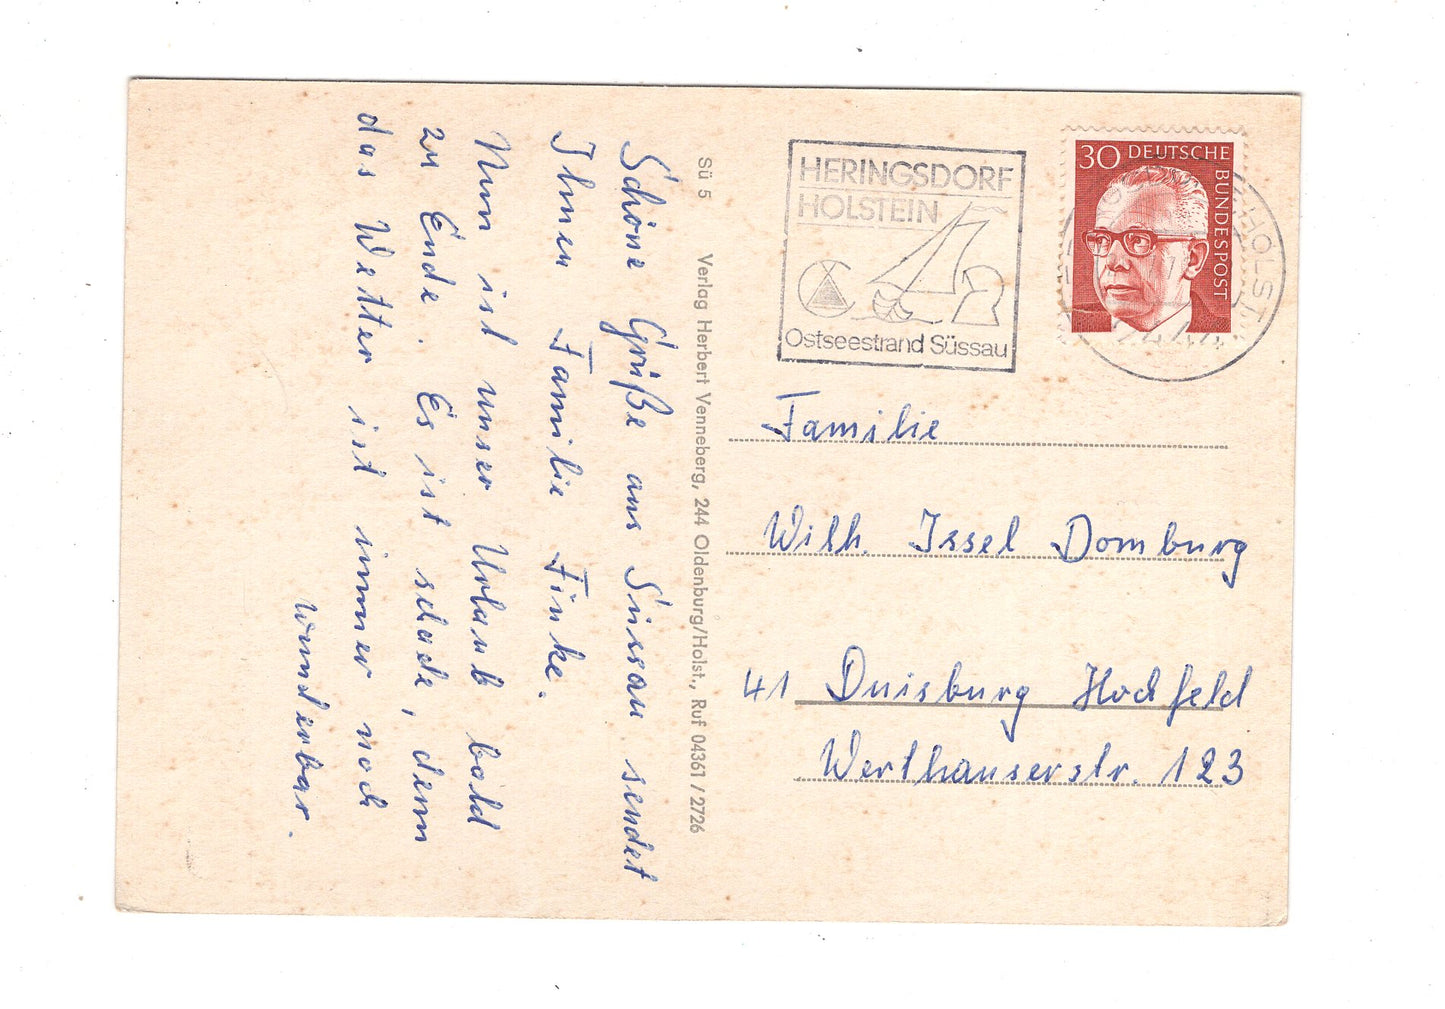 Schöne Grüße aus Süssau sendet
Ihnen Familie Finke.
Nun ist unser Urlaub bald
zu Ende. Es ist schade, denn
das Wetter ist immer noch
wunderbar.
Sü 5 Verlag Herbert Venneberg, 244 Oldenburg/Holst., Ruf 04361 / 2726
HERINGSDORF
HOLSTEIN
Ostseestrand Süssau
30 DEUTSCHE
BUNDESPOST
HOLST
2444
Familie
Wilh. Issel Domburg
41 Duisburg Hochfeld
Werthauserstr. 123